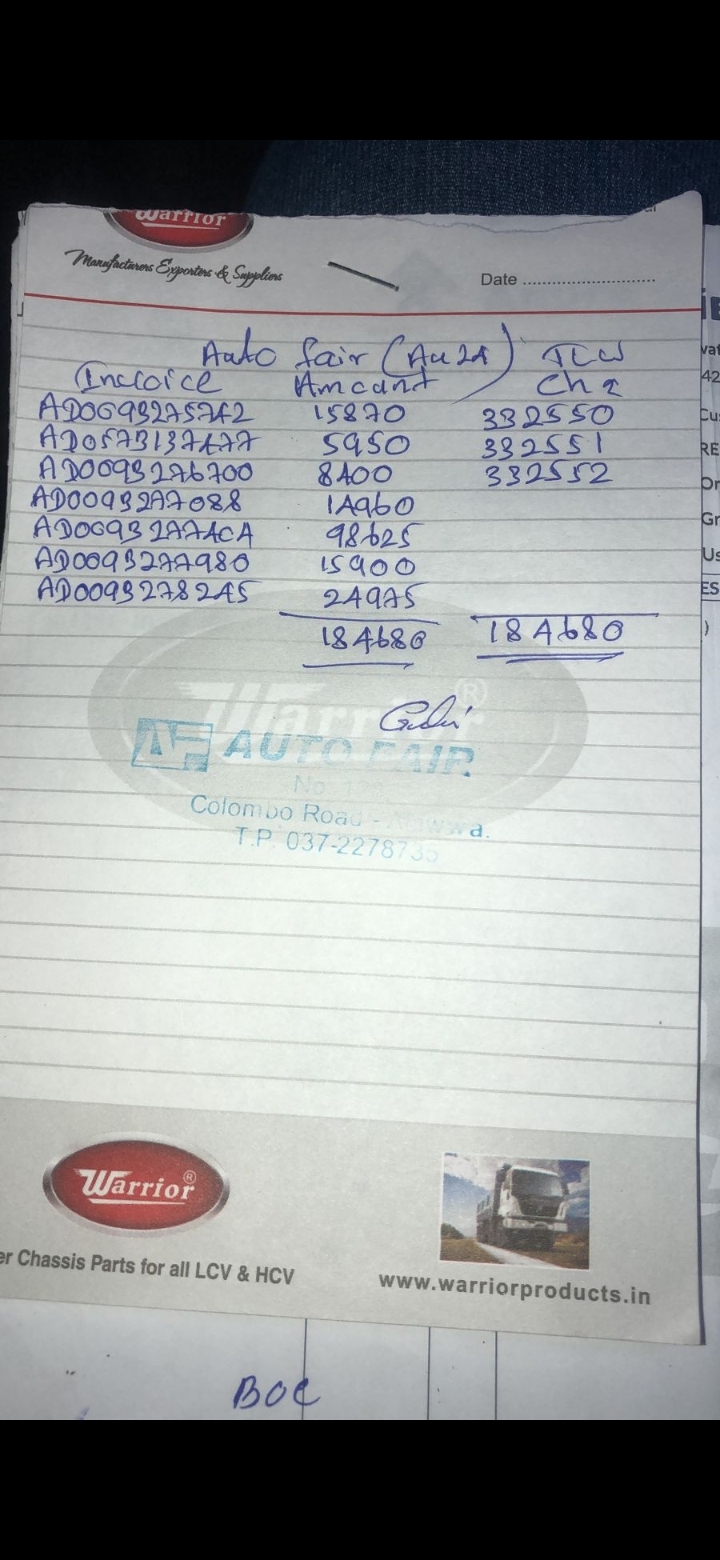 Warrior
Manufacturers Exporters & Suppliers
Date ............................
Auto fair (Au24) TCW
Invoice Amount Chq
AD0093275742 15870 332550
AD0573137477 5950 332551
AD0093276700 8400 332552
AD0093277088 14960
AD0093277404 98625
AD0093277980 15900
AD0093278245 24975
184680 184680
Warrior
AF AUTO FAIR
No.
Colombo Road - Alawwa.
T.P. 037-2278735
Warrior®
er Chassis Parts for all LCV & HCV
www.warriorproducts.in
BOC